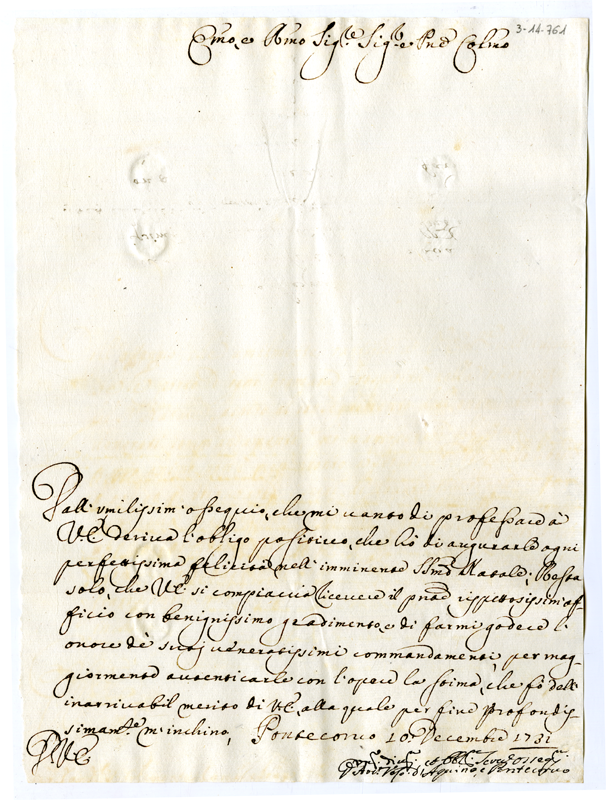 3-14.761
Emo, e Rmo Sigre Sigre Pne Colmo
Dall'umilissim'ossequio, che mi vanto di professare à
VE deriva l'obligo positivo, che hò di augurarle ogni
perfettissima felicità nell'imminente Smo Natale; Resta
solo, che VE si compiaccia ricevere il pnte rispettosissim'af-
ficio con benignissimo gradimento, e di farmi godere l'
onore dè suoi veneratissimi commandamenti, per mag-
giormente autenticarle con l'opere la stima, che fò dell'
inarrivabil merito di VE, alla quale per fine profondis-
simamte m'inchino, Pontecorvo 10 Decembre 1731
DVE
Aquino e Pontecorvo